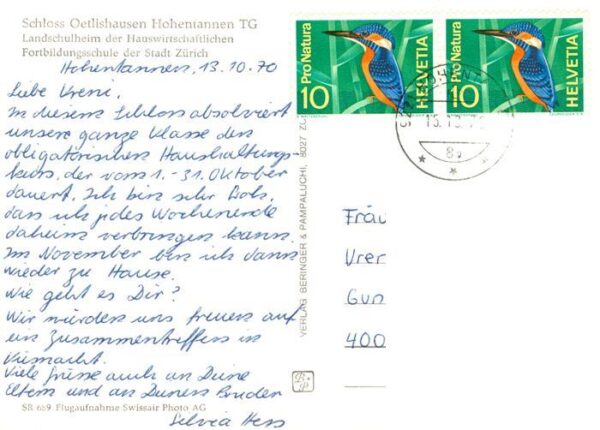 Schloss Oetlishausen Hohentannen TG
Landschulheim der Hauswirtschaftlichen
Fortbildungsschule der Stadt Zürich
Hohentannen, 13.10.70
Liebe Vreni,
In diesem Schloss absolviert
unsere ganze Klasse den
obligatorischen Haushaltungs-
kurs, der vom 1. - 31. Oktober
dauert. Ich bin sehr froh,
dass ich jedes Wochenende
daheim verbringen kann.
Im November bin ich dann
wieder zu Hause.
Wie geht es Dir?
Wir würden uns freuen auf
ein Zusammentreffen in
Viele Grüsse auch an Deine
Eltern und an Deinen Bruder
Silvia Hess
SR 689 Flugaufnahme Swissair Photo AG
VERLAG BERINGER & PAMPALUCHI, 8027 ZÜ
Pro Natura
10
HELVETIA
Pro Natura
10
HELVETIA
Fräu
Vrer
Gun
400